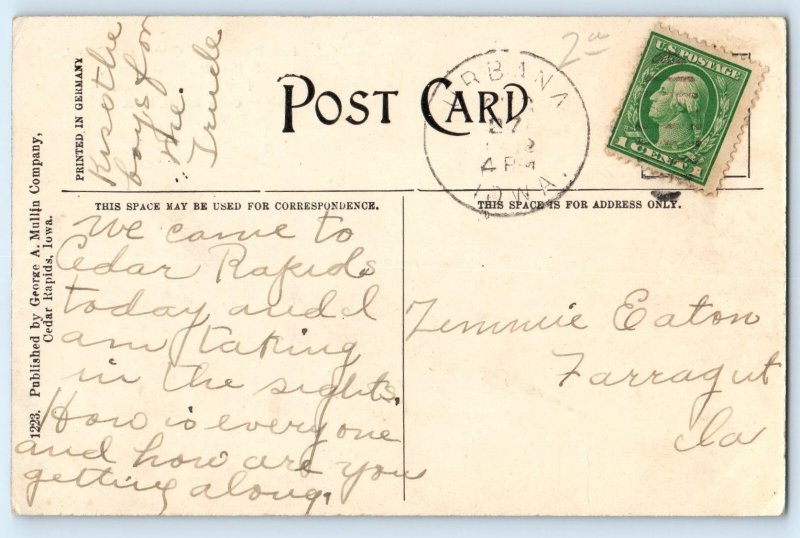 Kiss the
boys for
me.
Trude
PRINTED IN GERMANY
POST CARD
2a
URBANA
27
4 PM
IOWA.
U.S. POSTAGE
1 CENT 1
THIS SPACE MAY BE USED FOR CORRESPONDENCE.
THIS SPACE IS FOR ADDRESS ONLY.
1223. Published by George A. Mullin Company,
Cedar Rapids, Iowa.
We came to
Cedar Rapids
today and I
am taking
in the sights.
How is everyone
and how are you
getting along.
Zemmie Eaton
Farragut
Ia